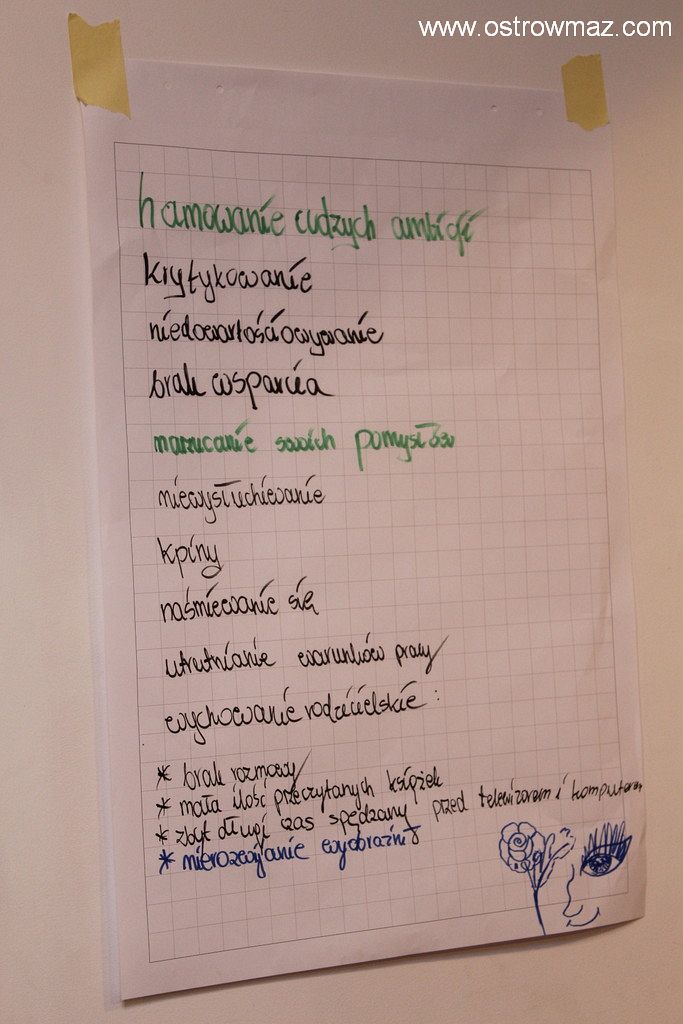 www.ostrowmaz.com
hamowanie cudzych ambicji
krytykowanie
niedowartościowywanie
brak wsparcia
narzucanie swoich pomysłów
niewysłuchiwanie
kpiny
naśmiewanie się
utrudnianie warunków pracy
wychowanie rodzicielskie :
* brak rozmowy
* mała ilość przeczytanych książek
* zbyt długi czas spędzany przed telewizorem i komputerem
* nierozwijanie wyobraźni